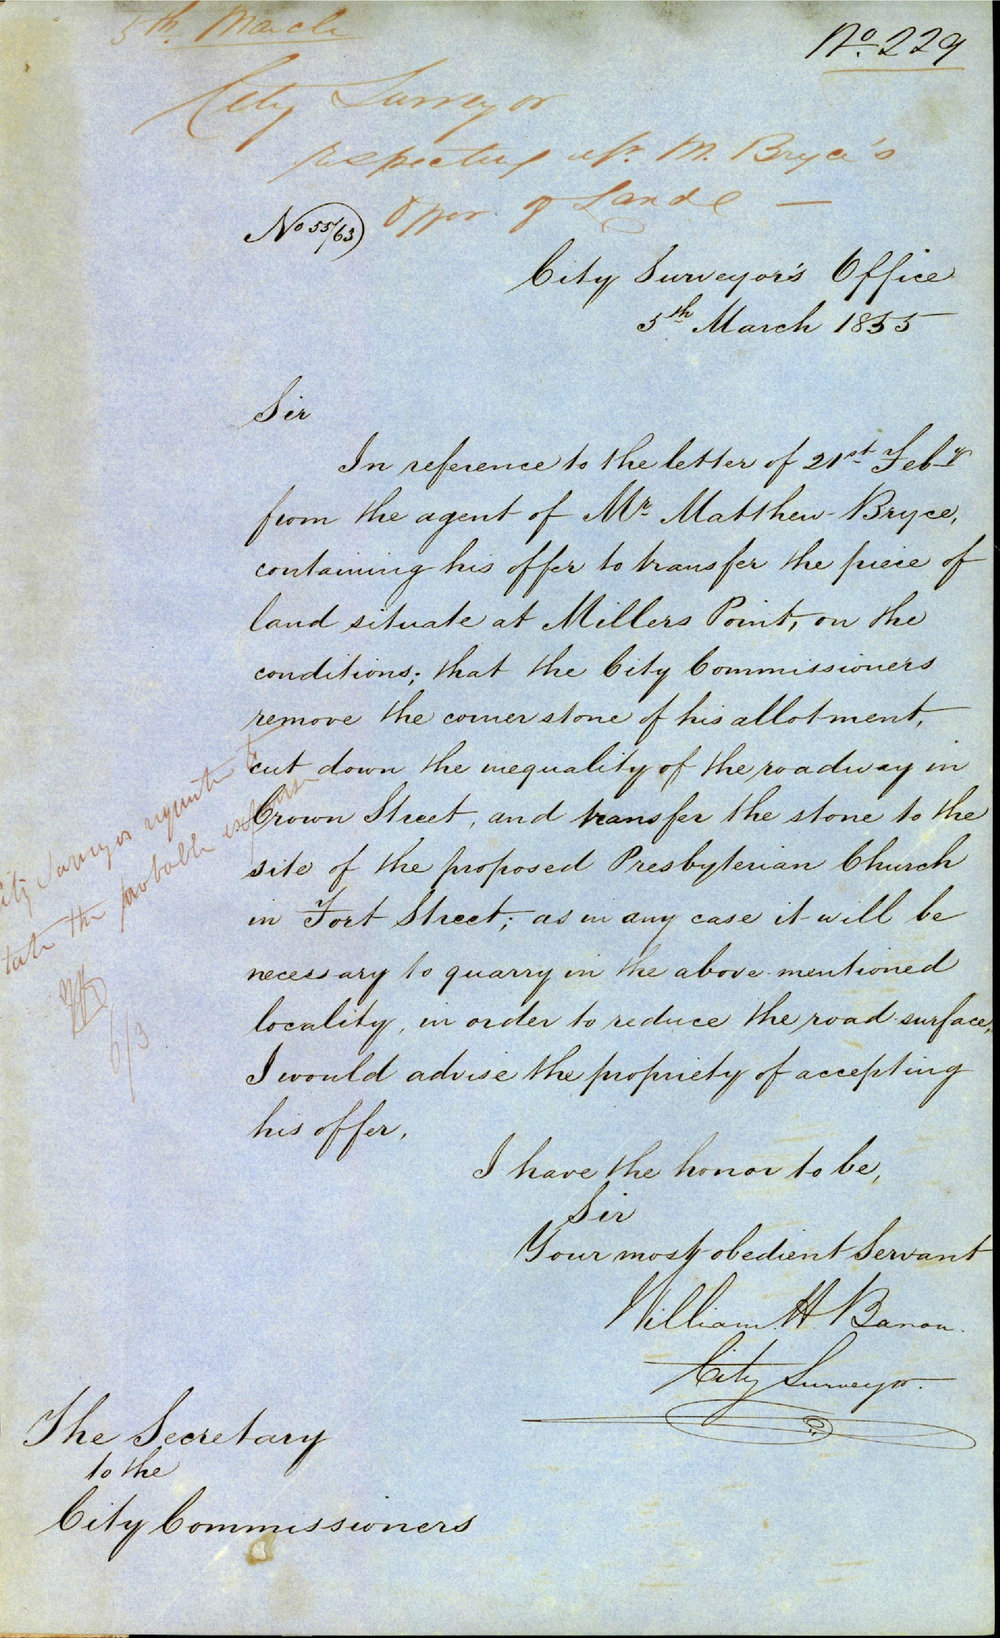 5th. March
No. 229
City Surveyor
respecting Mr. M. Bryce's
Offer of Land —
No 55/63)
City Surveyor's Office
5th March 1855
Sir
In reference to the letter of 21st Feby
from the agent of Mr Matthew Bryce,
containing his offer to transfer the piece of
land situate at Millers Point, on the
conditions; that the City Commissioners
remove the corner stone of his allotment,
cut down the inequality of the roadway in
Crown Street, and transfer the stone to the
site of the proposed Presbyterian Church
in Fort Street; as in any case it will be
necessary to quarry in the above mentioned
locality, in order to reduce the road surface,
I would advise the propriety of accepting
his offer.
City Surveyor requested to
state the probable expense
6/3
I have the honor to be,
Sir
Your most obedient Servant
William. H. Baron.
City Surveyor.
The Secretary
to the
City Commissioners